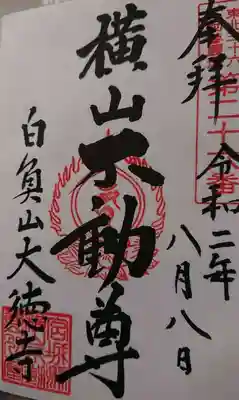 奉拝
令和二年
八月八日
横山不動尊
白魚山大徳寺